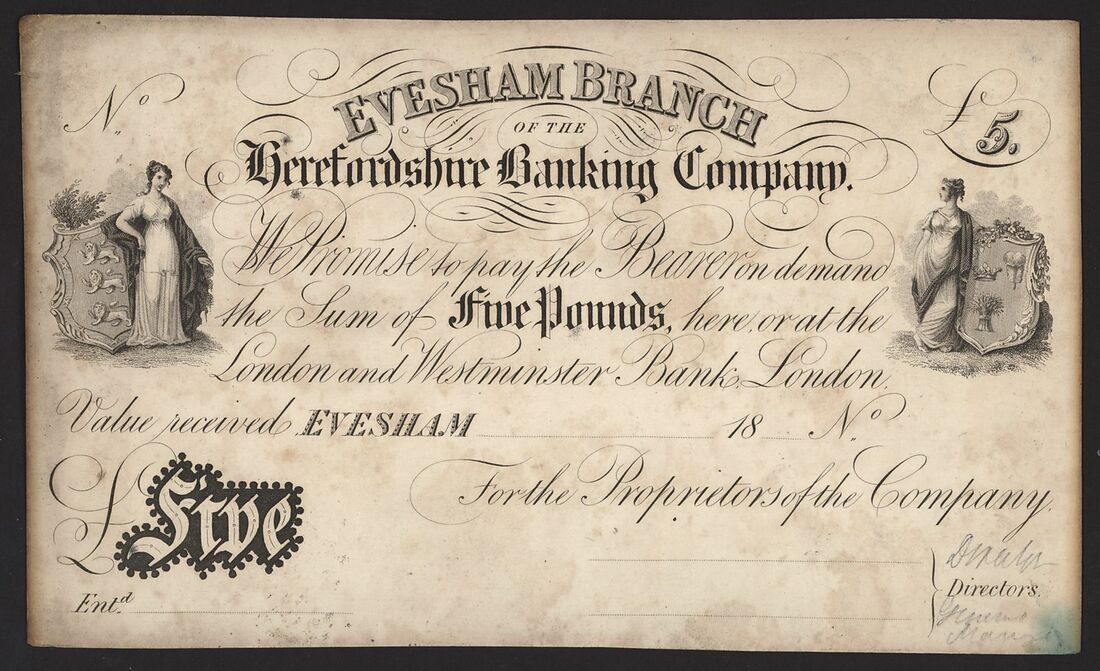 EVESHAM BRANCH
No.
£5.
OF THE
Herefordshire Banking Company.
We Promise to pay the Bearer on demand
the Sum of Five Pounds, here, or at the
London and Westminster Bank, London.
Value received EVESHAM 18 No.
£ Five
For the Proprietors of the Company,
Directors.
Entd.